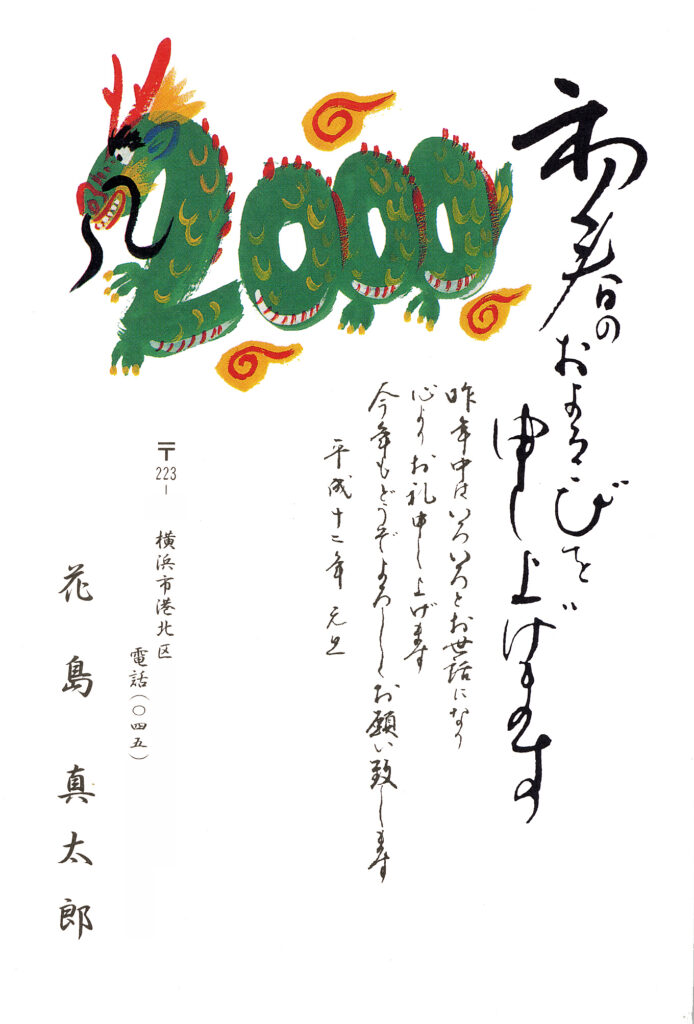 2000
初春のおよろこびを
申し上げます
昨年中はいろいろとお世話になり
心よりお礼申し上げます
今年もどうぞよろしくお願い致します
平成十二年 元旦
〒223-
横浜市港北区
電話(〇四五)
花島真太郎